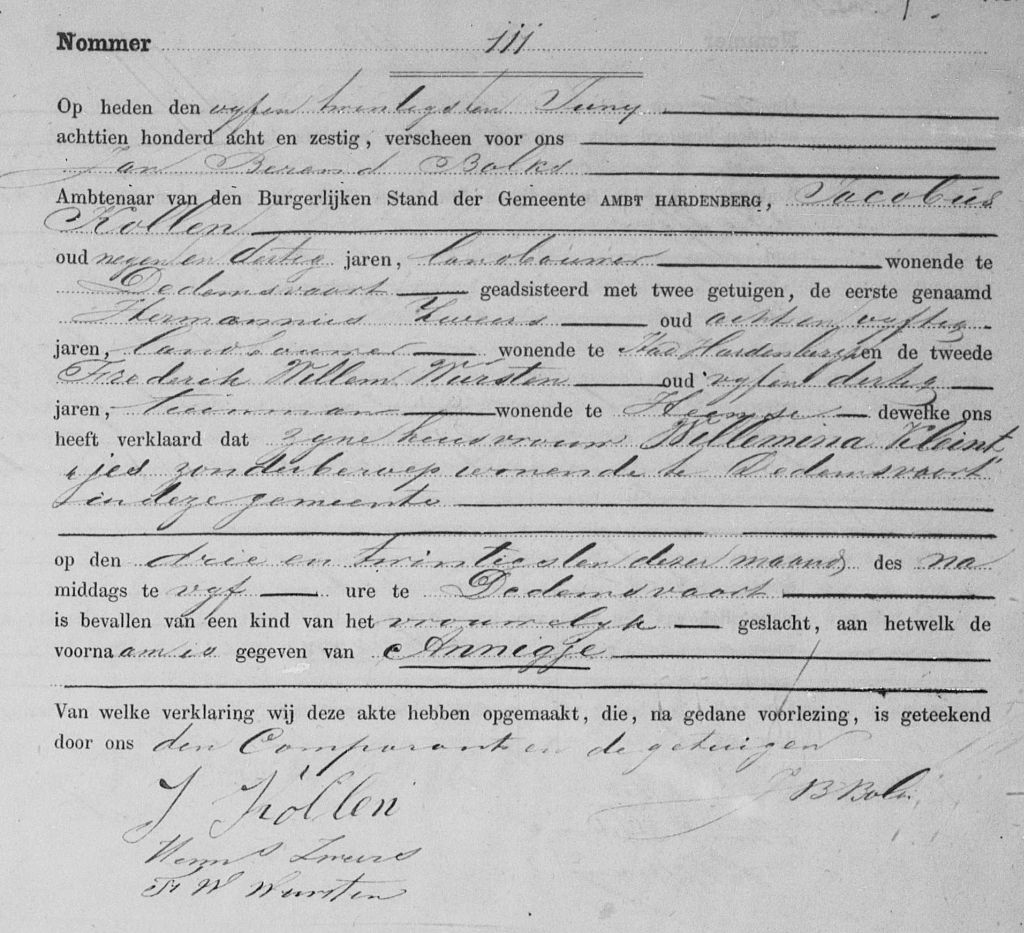 Nommer 111
Op heden den vyfen twintigsten Juny
achttien honderd acht en zestig, verscheen voor ons
Jan Berend Bolks
Ambtenaar van den Burgerlijken Stand der Gemeente AMBT HARDENBERG, Jacobus
Kollen
oud negen en dertig jaren, landbouwer wonende te
Dedemsvaart geadsisteerd met twee getuigen, de eerste genaamd
Hermannus Zweers oud acht en vyftig
jaren, landbouwer wonende te Stad Hardenberg en de tweede
Frederik Willem Wursten oud vyfen dertig
jaren, tuinman wonende te Heemse dewelke ons
heeft verklaard dat zyne huisvrouw Willemina Kleint
jes zonder beroep wonende te Dedemsvaart
in deze gemeente
op den drie en twintigsten dezer maand, des na
middags te vyf ure te Dedemsvaart
is bevallen van een kind van het vrouwelyk geslacht, aan hetwelk de
voornaam is gegeven van Annigje
Van welke verklaring wij deze akte hebben opgemaakt, die, na gedane voorlezing, is geteekend
door ons den Comparant en de getuigen
J Kollen
J B Bolks
Herms Zweers
Fr W Wursten